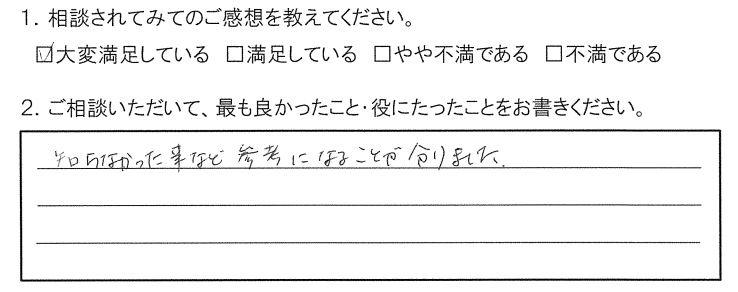 1．相談されてみてのご感想を教えてください。
☑大変満足している □満足している □やや不満である □不満である
2．ご相談いただいて、最も良かったこと・役にたったことをお書きください。
知らなかった事など参考になることが分りました。